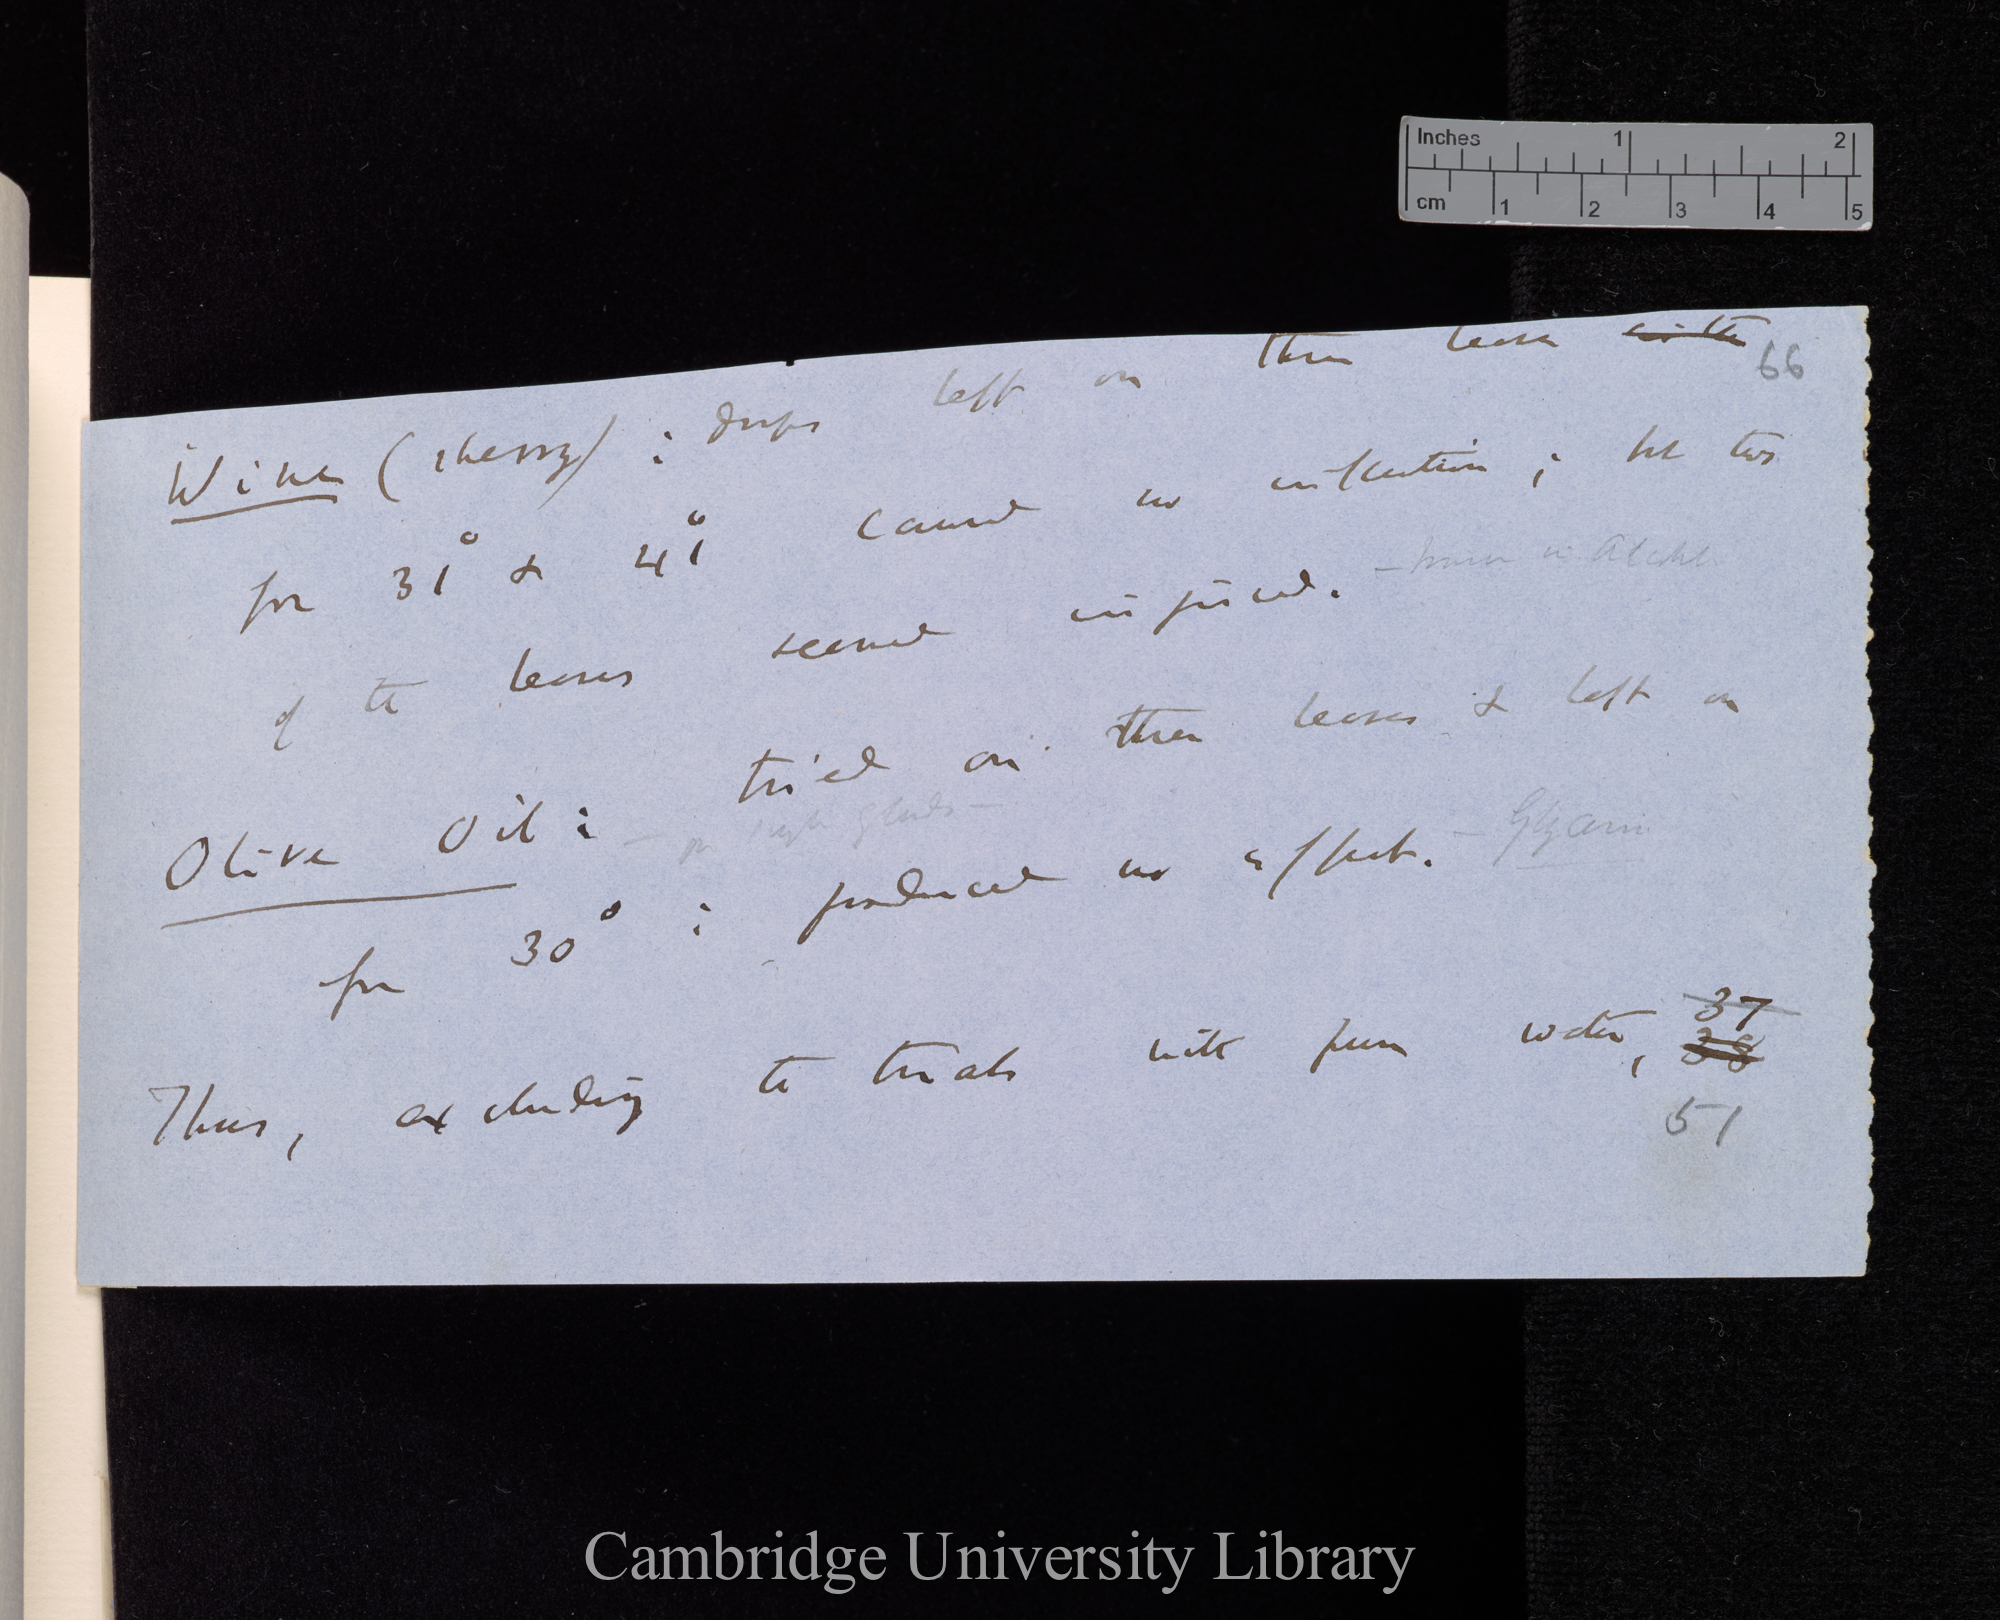 Inches 1 2
cm 1 2 3 4 5
66
Wine (sherry); drops left on three leaves
for 31° & 41° caused no inflection; but two
of the leaves seemed injured. –
Olive Oil: tried on three leaves & left on
for 30°: produced no effect. –
Thus, excluding the trials with pure water, 37
38
51
Cambridge University Library